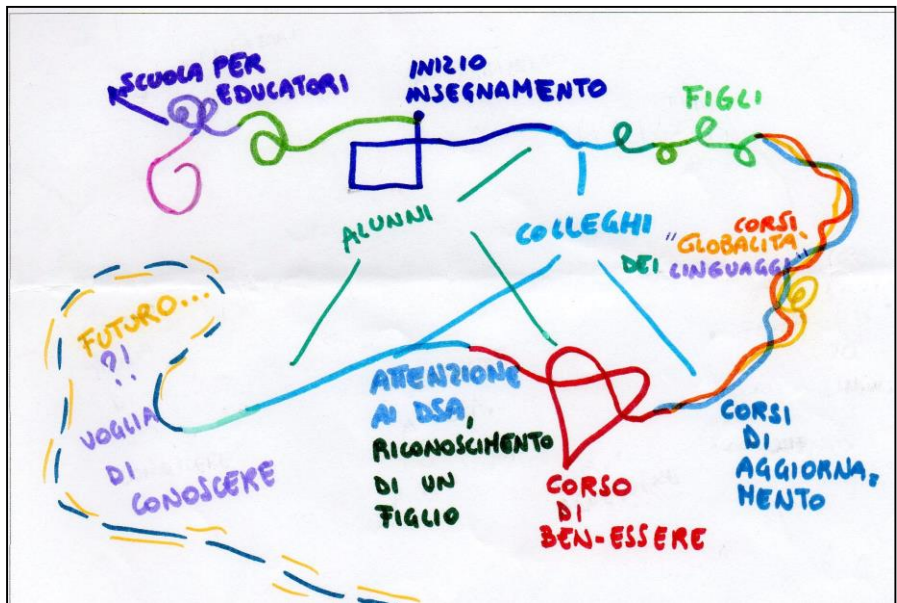 SCUOLA PER
EDUCATORI
INIZIO
INSEGNAMENTO
FIGLI
ALUNNI
COLLEGHI
CORSI
"GLOBALITA'
DEI LINGUAGGI"
FUTURO...
?!
VOGLIA
DI
CONOSCERE
ATTENZIONE
AI DSA,
RICONOSCIMENTO
DI UN
FIGLIO
CORSO
DI
BEN-ESSERE
CORSI
DI
AGGIORNA=
MENTO